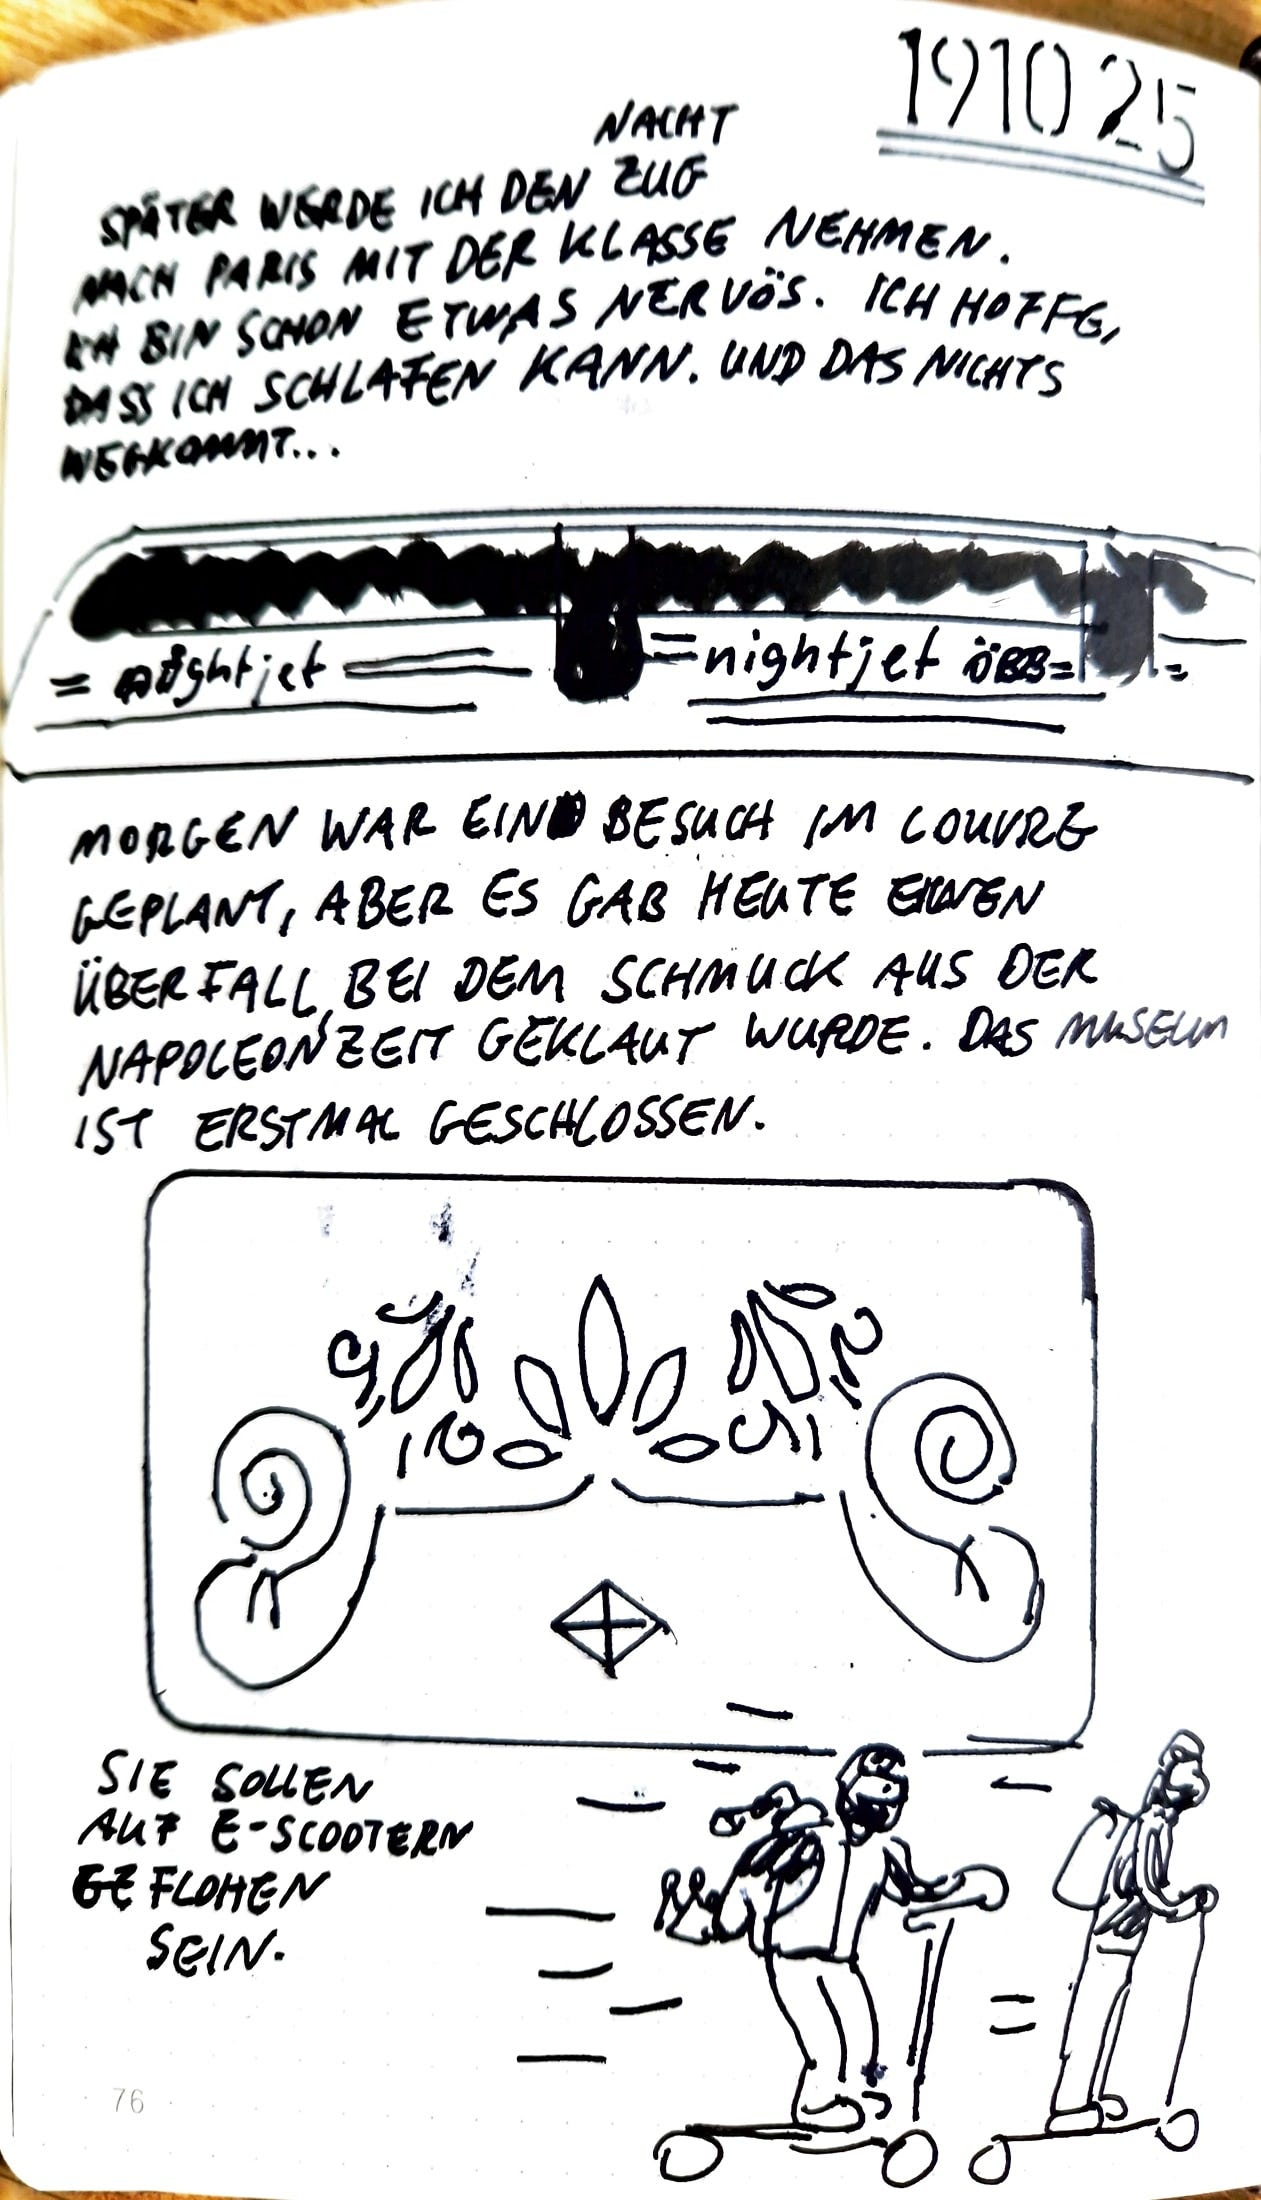 191025
NACHT
SPÄTER WERDE ICH DEN ZUG
NACH PARIS MIT DER KLASSE NEHMEN.
ICH BIN SCHON ETWAS NERVÖS. ICH HOFFE,
DASS ICH SCHLAFEN KANN. UND DAS NICHTS
WEGKOMMT...
= nightjet = nightjet ÖBB= =
MORGEN WAR EIN BESUCH IM LOUVRE
GEPLANT, ABER ES GAB HEUTE EINEN
ÜBERFALL, BEI DEM SCHMUCK AUS DER
NAPOLEONZEIT GEKLAUT WURDE. DAS MUSEUM
IST ERSTMAL GESCHLOSSEN.
SIE SOLLEN
AUF E-SCOOTERN
GEFLOHEN
SEIN.
76